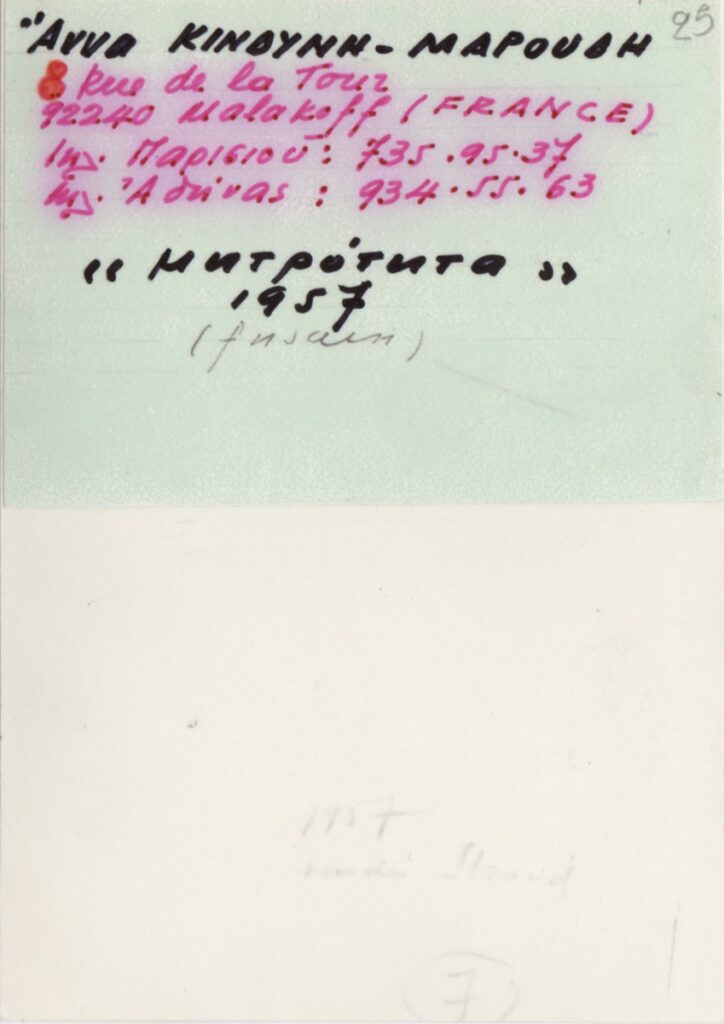 25
Ἄννα ΚΙΝΔΥΝΗ-ΜΑΡΟΥΔΗ
8 Rue de la Tour
92240 Malakoff (FRANCE)
τηλ. Παρισιού: 735.95.37
τηλ. Ἀθήνας: 934.55.63
« Μητρότητα »
1957
(fusain)
1957
7